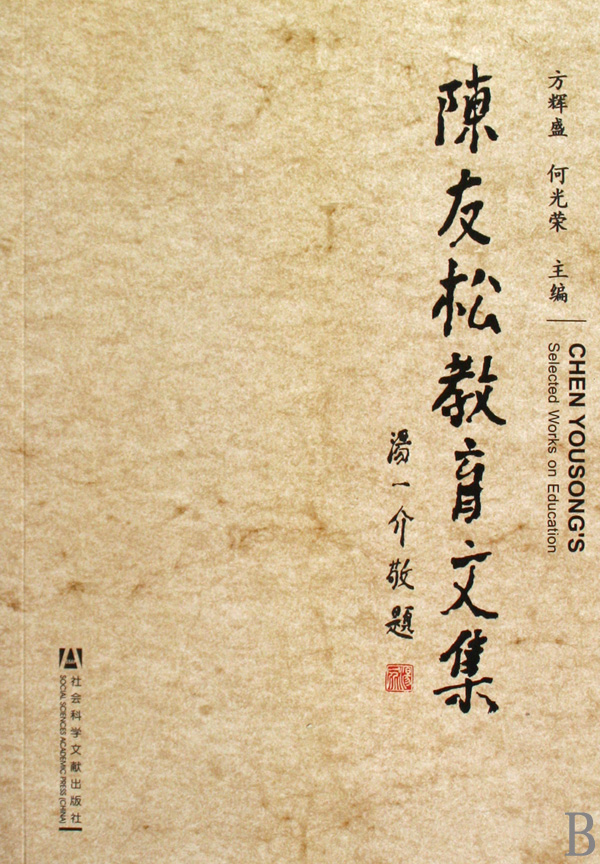 方辉盛 何光荣 主编
CHEN YOUSONG'S
Selected Works on Education
陳友松教育文集
湯一介敬題
社会科学文献出版社
SOCIAL SCIENCES ACADEMIC PRESS (CHINA)
B